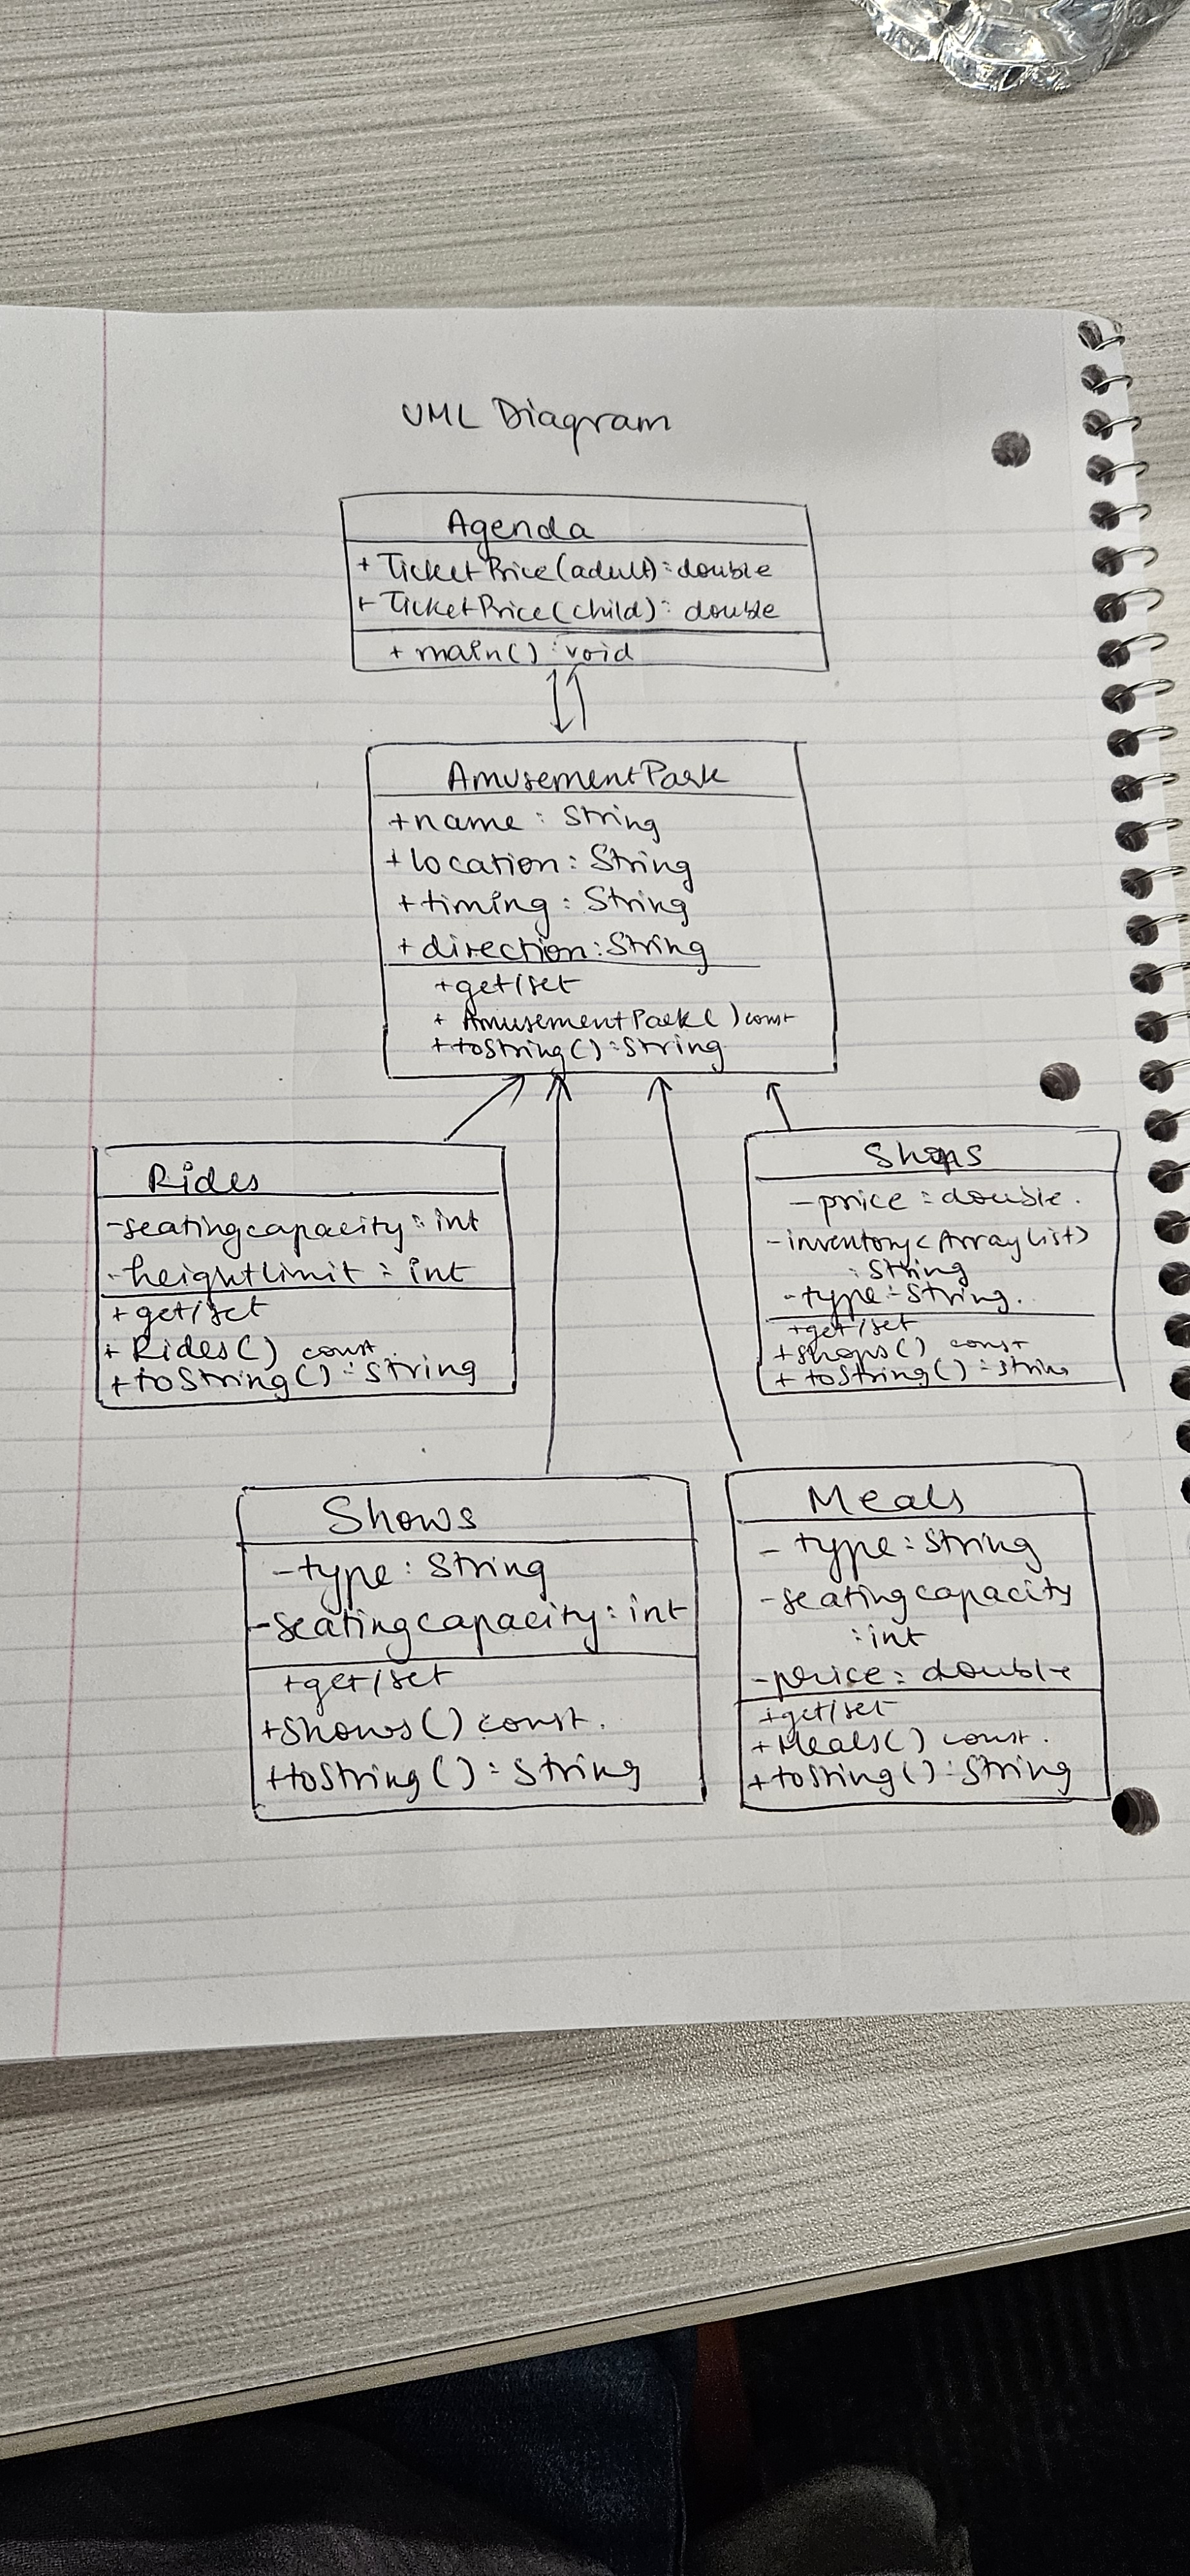 UML Diagram
Agenda
+ TicketPrice(adult): double
+ TicketPrice(child): double
+ main() : void
AmusementPark
+name : String
+location : String
+timing : String
+direction : String
+get/set
+ AmusementPark() const
+toString() : String
Rides
-seatingcapacity : int
-heightlimit : int
+get/set
+ Rides() const
+toString() : String
Shops
-price : double.
-inventory<ArrayList>
: String
-type : String.
+get/set
+shops() const
+ toString() : String
Shows
-type : String
-seatingcapacity : int
+get/set
+shows() const.
+toString() : String
Meals
- type : String
-seatingcapacity
: int
-price : double
+get/set
+Meals() const.
+toString() : String